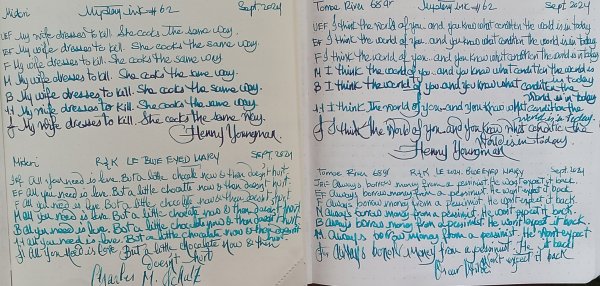 Midori Mystery ink #62 Sept 2024
UEF My wife dresses to kill. She cooks the same way.
EF My wife dresses to kill. She cooks the same way.
F My wife dresses to kill. She cooks the same way.
M My wife dresses to kill. She cooks the same way.
B My wife dresses to kill. She cooks the same way.
My wife dresses to kill. She cooks the same way.
My wife dresses to kill. She cooks the same way.
Henny Youngman
Midori R&K LE BLUE EYED MARY SEPT 2024
UEF All you need is love. But a little chocolate now & then doesn't hurt.
EF All you need is love. But a little chocolate now & then doesn't hurt.
F All you need is love. But a little chocolate now & then doesn't hurt.
M All you need is love. But a little chocolate now & then doesn't hurt
B All you need is love. But a little chocolate now & then doesn't hurt
All you need is love. But a little chocolate now & then doesn't hurt
All you need is love. But a little chocolate now & then
doesn't hurt
Charles M. Schulz
Tomoe River 68gr Mystery ink #62 Sept 2024
UEF I think the world of you.. and you know what condition the world is in today
EF I think the world of you.. and you know what condition the world is in today
F I think the world of you.. and you know what condition the world is in today
M I think the world of you.. and you know what condition the world is
in today
B I think the world of you.. and you know what condition the
world is in today
I think the world of you.. and you know what condition the
world is in today.
I think the world of you.. and you know what condition the
world is in today
Henny Youngman
Tomoe River 68gr R&K LE 2024 BLUE EYED MARY Sept. 2024
UEF Always borrow money from a pessimist. He won't expect it back.
EF Always borrow money from a pessimist. He won't expect it back.
F Always borrow money from a pessimist. He won't expect it back.
M Always borrow money from a pessimist. He won't expect it back.
B Always borrow money from a pessimist. He won't expect it back.
Always borrow money from a pessimist. He won't expect
it back
Always borrow money from a pessimist. He
won't expect it back
Oscar Wilde